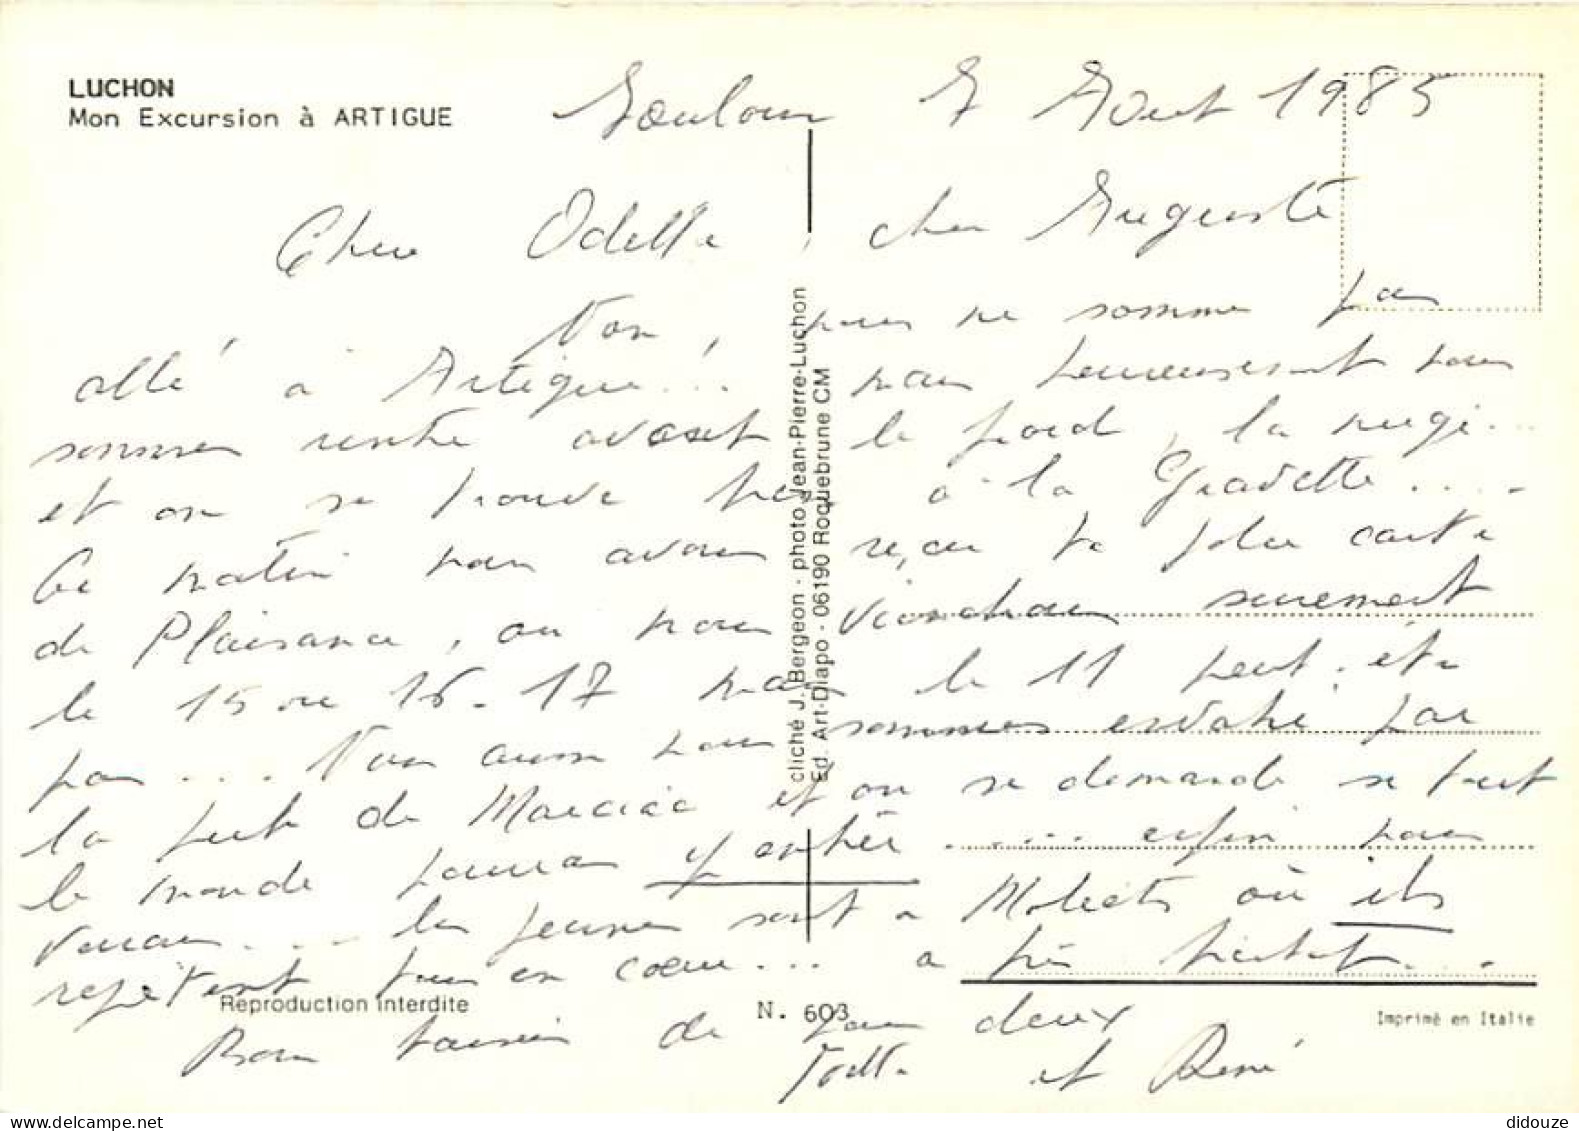 LUCHON
Mon Excursion à ARTIGUE
7 Août 1985
Chere Odette, cher Auguste
Non, nous ne sommes pas
allé à Artigue!.. mais heureusement nous
sommes rentré avant le froid, la neige...
et on se trouve bien à la Gravette....
Ce matin nous avons reçu ta jolie carte
de Plaisance, ou nous viendrons surement
le 15 ou 16-17 mais le 11 peut.être
pas... Nous aussi nous sommes envahi par
la pub de Marciac et on se demande si tout
le monde pourra y entrer ..... enfin nous
verrons.... les jeunes sont a où ils
répètent en coeur... a très bientot...
Bons baisers de nous deux
Yvette et René
cliché J. Bergeon - photo Jean-Pierre-Luchon
Ed. Art-Diapo - 06190 Roquebrune CM
Reproduction interdite
N. 603
Imprimé en Italie
didouze